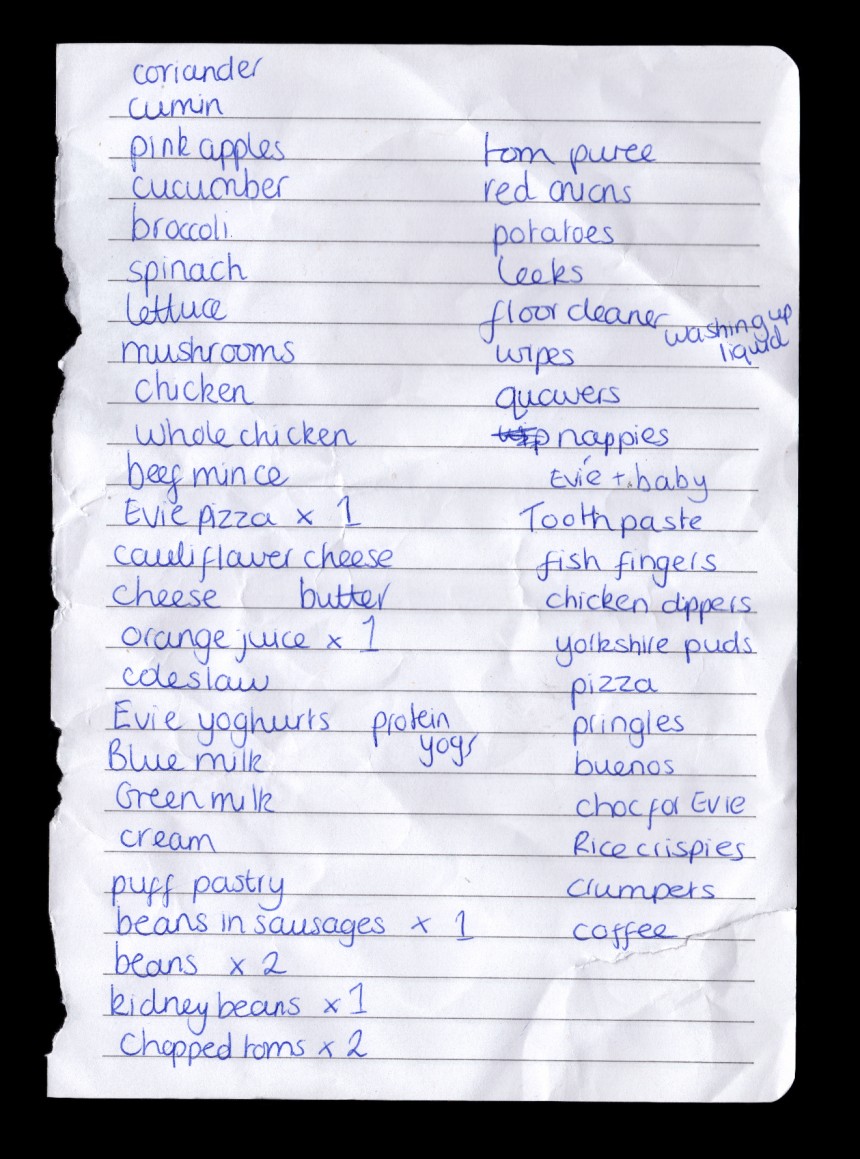 coriander
cumin
pink apples
cucumber
broccoli.
spinach
lettuce
mushrooms
chicken
whole chicken
beef mince
Evie pizza x 1
cauliflower cheese
cheese butter
orange juice x 1
coleslaw
Evie yoghurts protein
yogs
Blue milk
Green milk
cream
puff pastry
beans in sausages x 1
beans x 2
kidney beans x 1
Chopped toms x 2
tom puree
red onions
potatoes
leeks
floor cleaner washing up
liquid
wipes
quavers
nappies
Evie + baby
Toothpaste
fish fingers
chicken dippers
yorkshire puds
pizza
pringles
buenos
choc for Evie
Rice crispies
crumpets
coffee